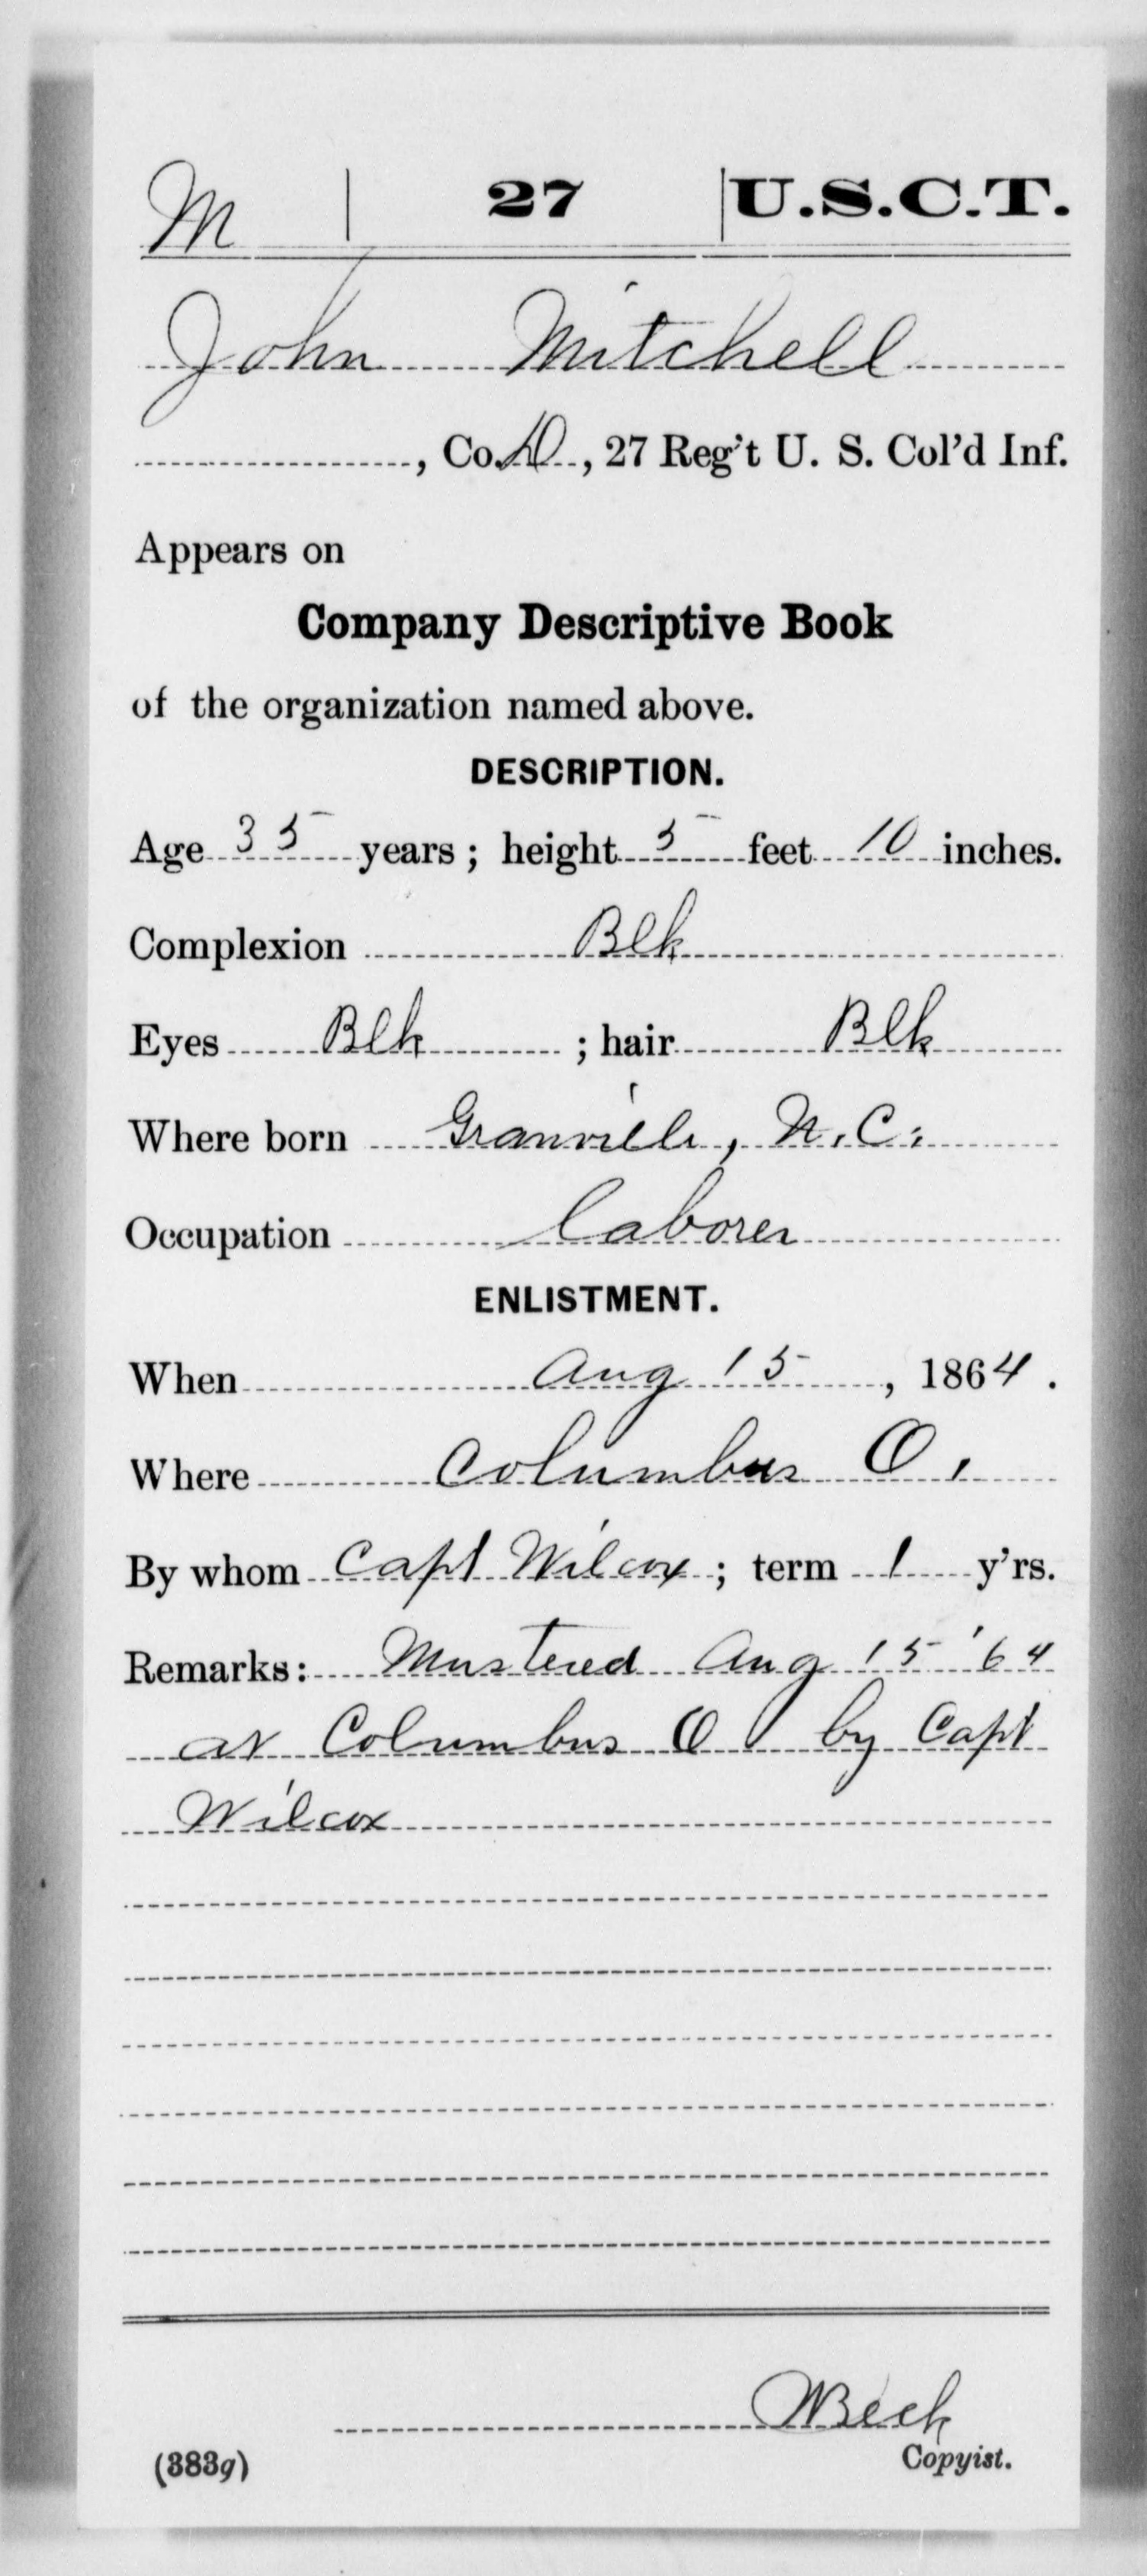 M | 27 | U.S.C.T.
John Mitchell
, Co. D, 27 Reg't U. S. Col'd Inf.
Appears on
Company Descriptive Book
of the organization named above.
DESCRIPTION.
Age 35 years; height 5 feet 10 inches.
Complexion Blk
Eyes Blk ; hair Blk
Where born Granville, N.C.
Occupation Laborer
ENLISTMENT.
When Aug 15, 1864.
Where Columbus O.
By whom Capt Wilcox; term 1 y'rs.
Remarks: Mustered Aug 15 '64
at Columbus O by Capt
Wilcox
WBeck
(383g) Copyist.